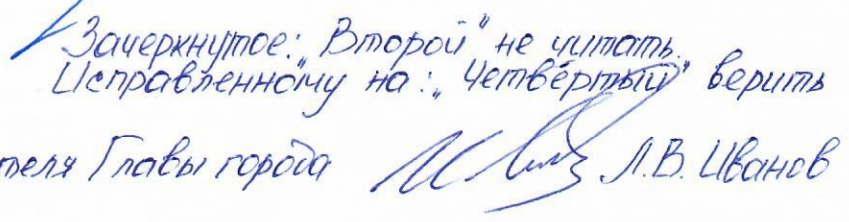 Зачеркнутое: „Второй" не читать.
Исправленному на: „Четвёртый" верить
теля Главы города Л.В. Иванов